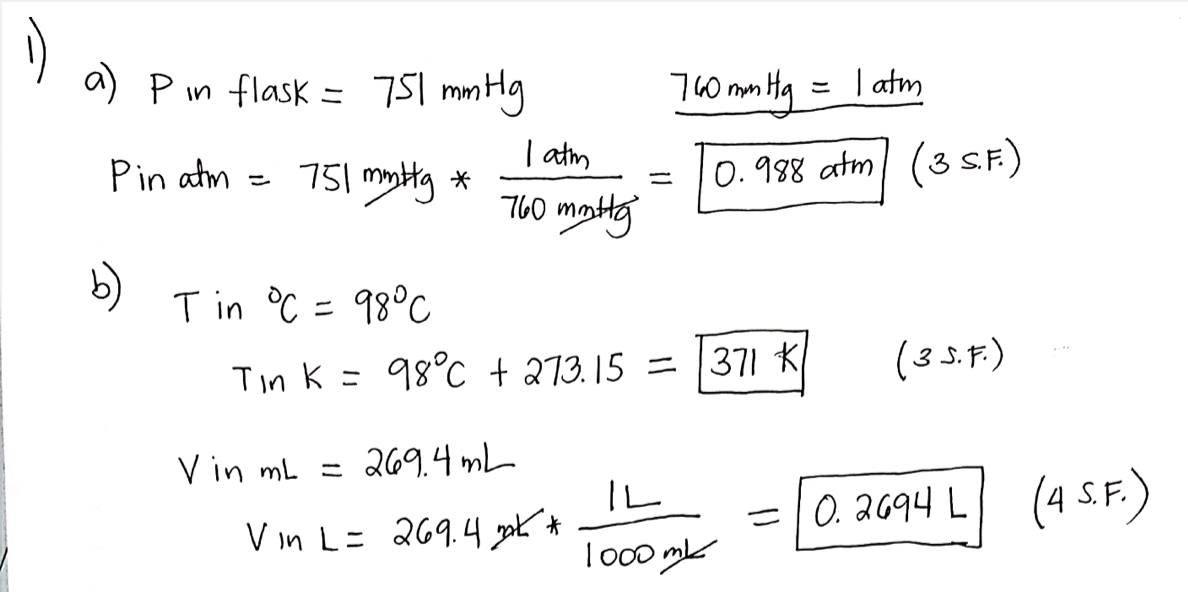 1)
a) P in flask = 751 mmHg 760 mmHg = 1 atm
P in atm = 751 mmHg * 1 atm / 760 mmHg = 0.988 atm (3 S.F.)
b) T in °C = 98°C
T in K = 98°C + 273.15 = 371 K (3 S.F.)
V in mL = 269.4 mL
V in L = 269.4 mL * 1L / 1000 mL = 0.2694 L (4 S.F.)